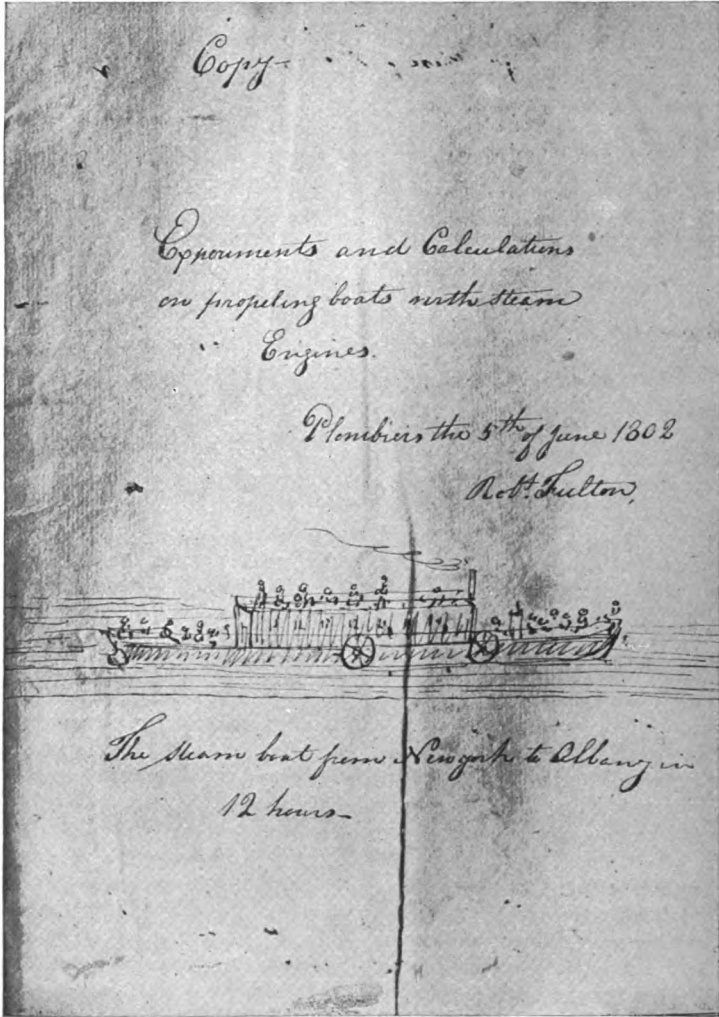 Copy
Experiments and Calculations
on propeling boats with steam
Engines.
Plombiers the 5th of June 1802
Robt. Fulton,
The steam boat from Newyork to Albany in
12 hours